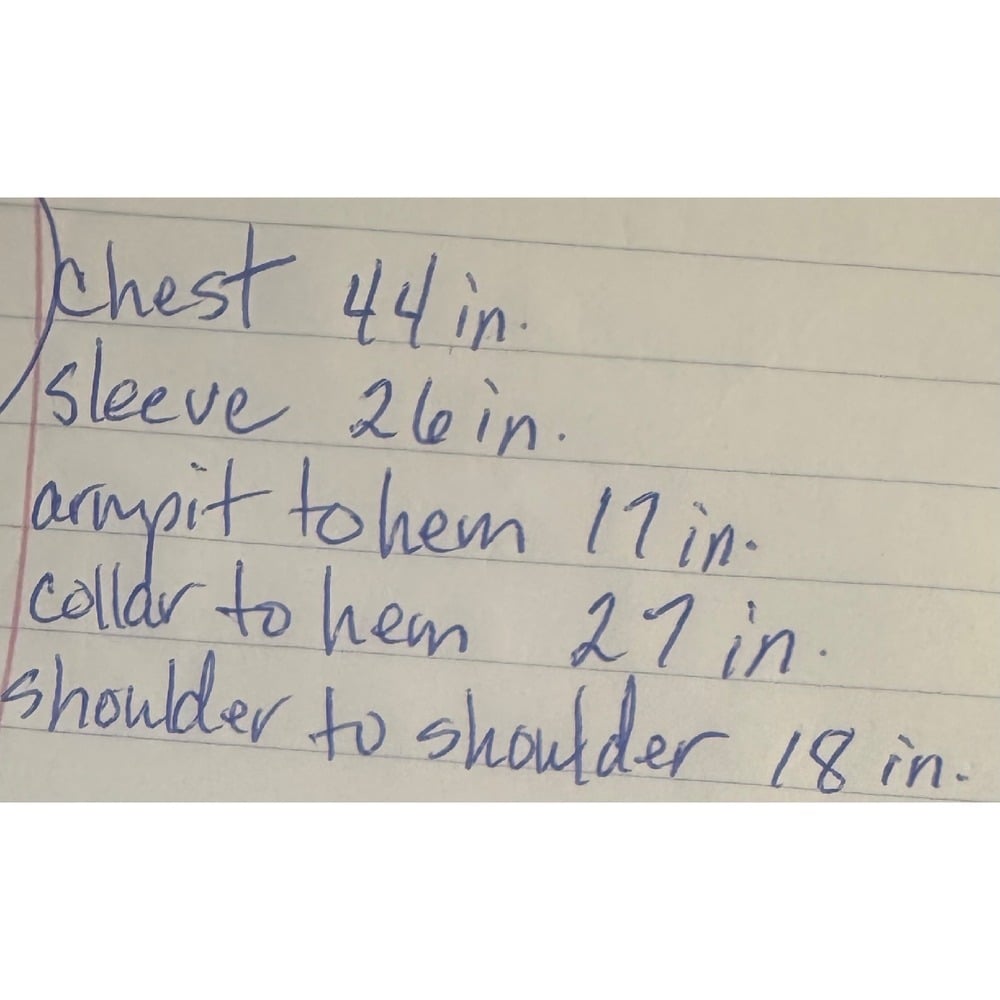 chest 44 in.
sleeve 26 in.
armpit to hem 17 in.
collar to hem 27 in.
shoulder to shoulder 18 in.